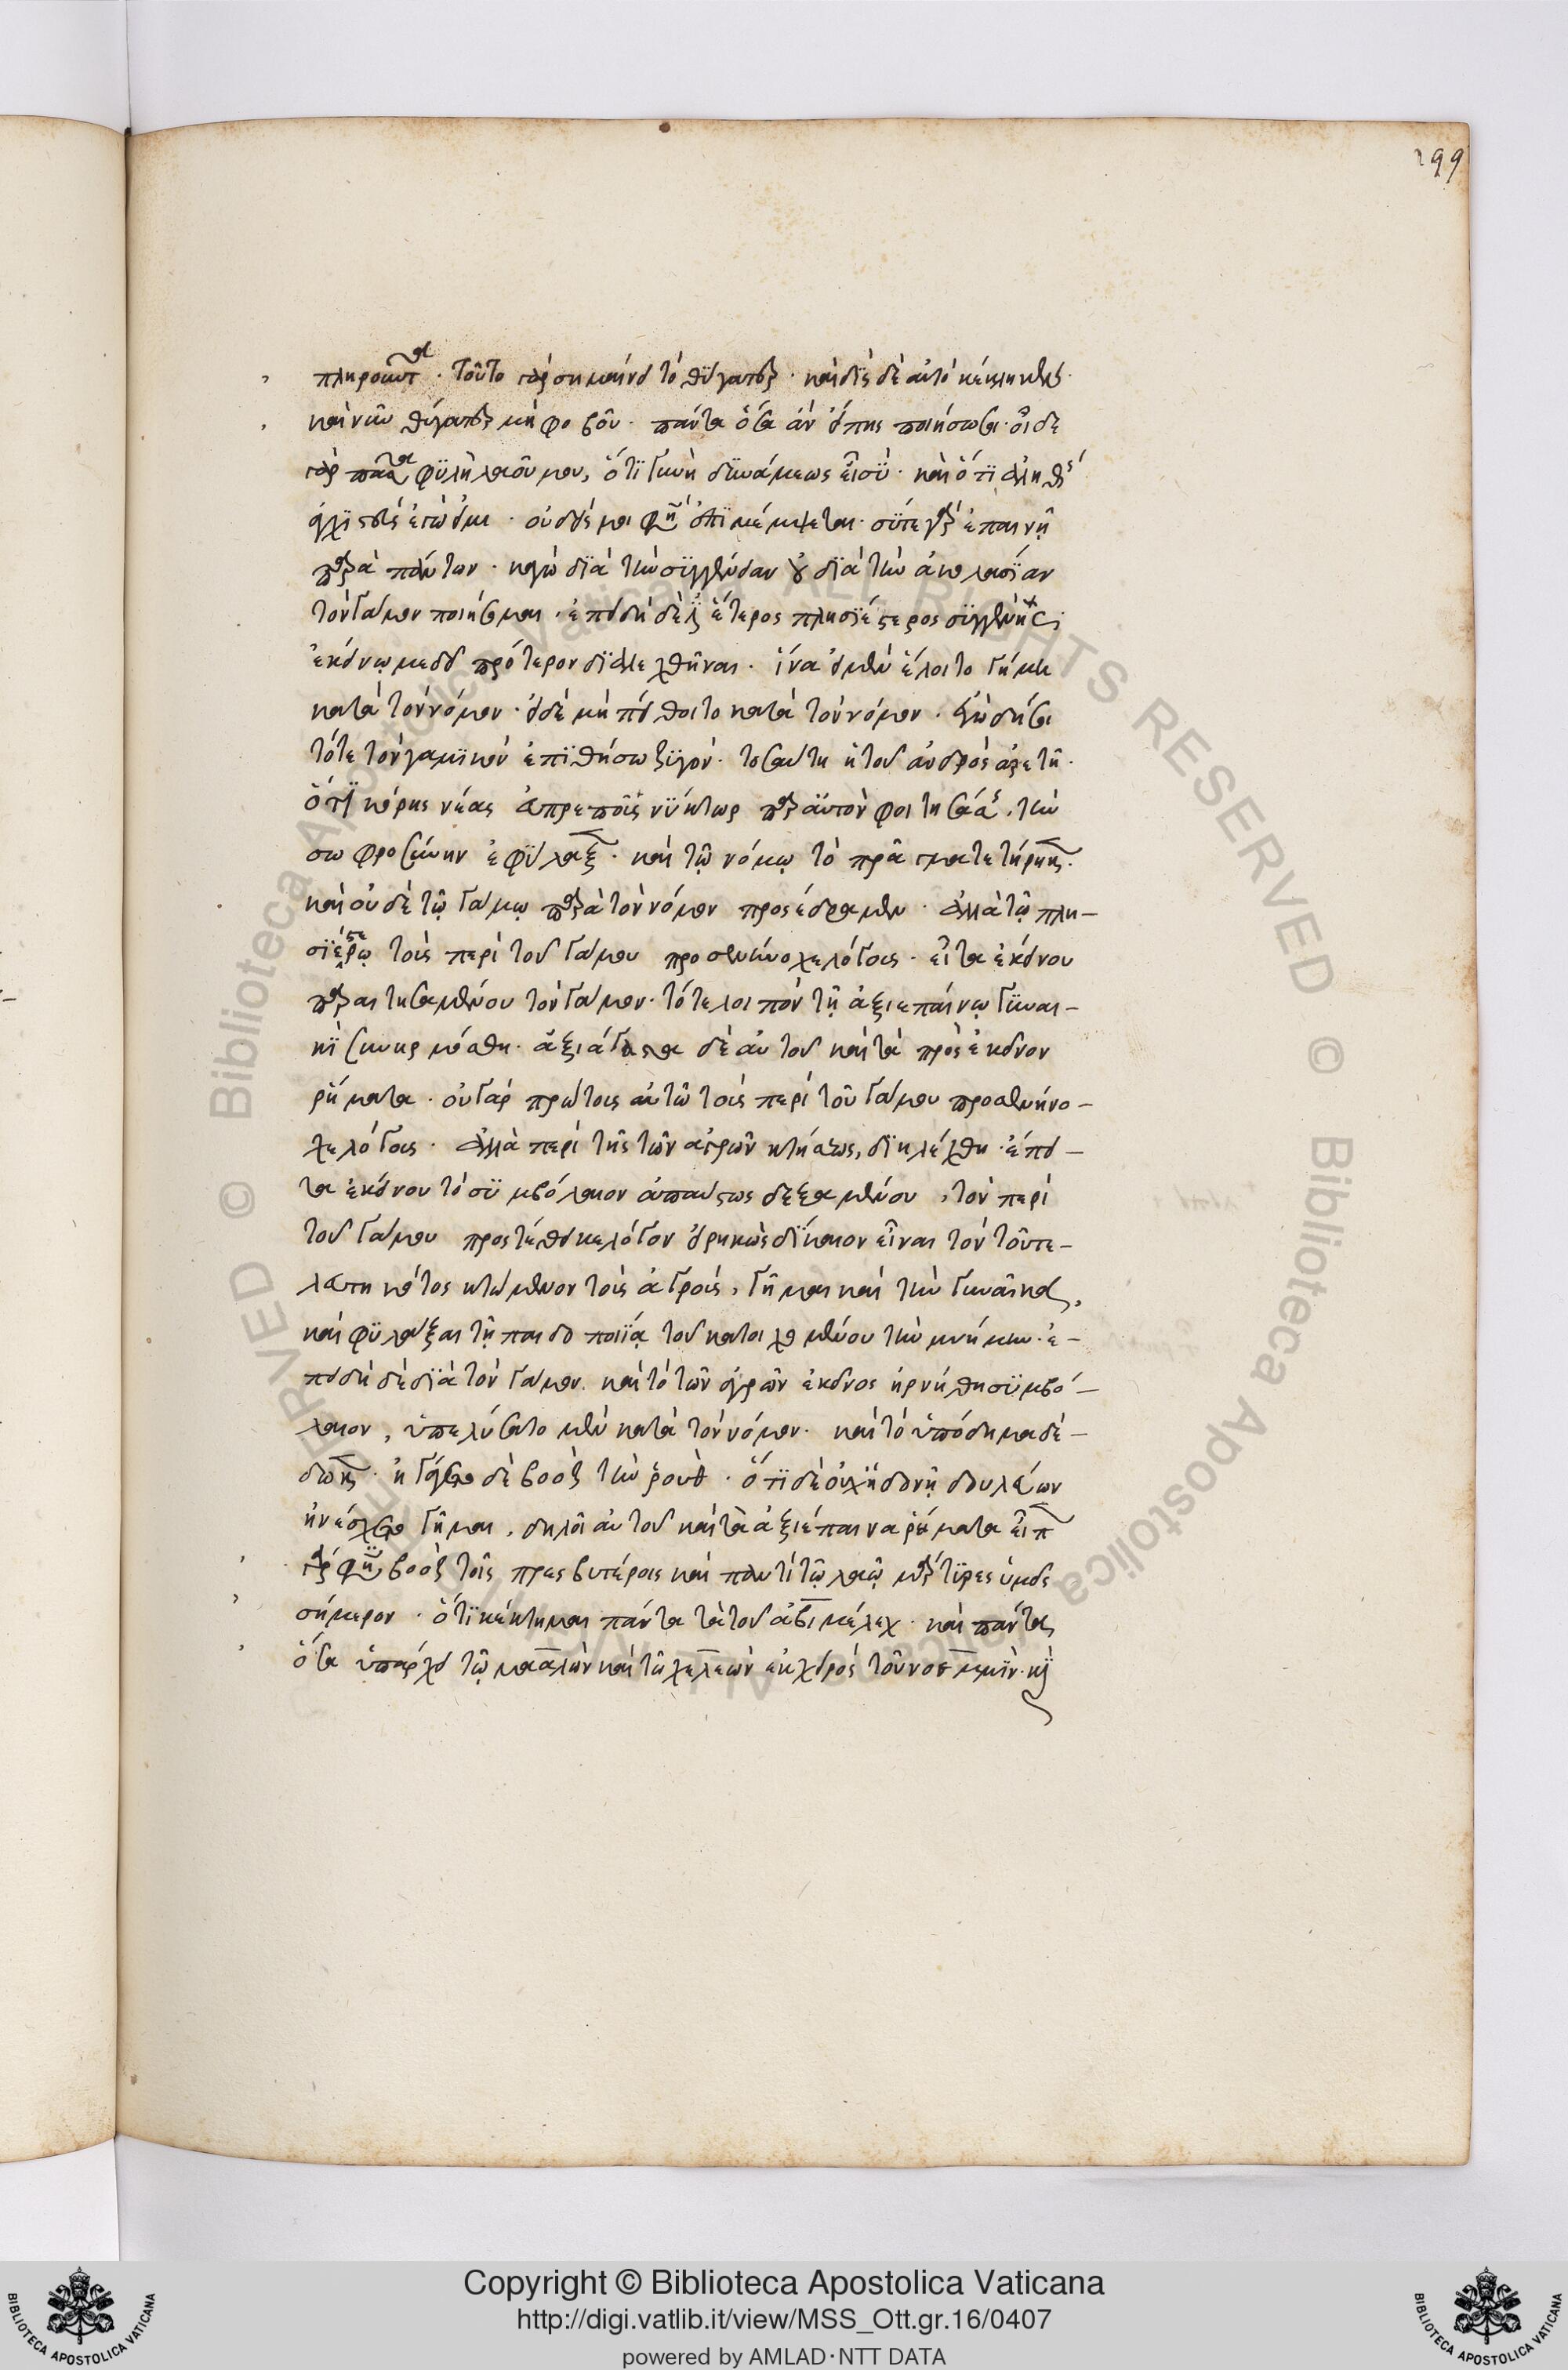 199
πληροῦντα · τοῦτο γὰρ σημαίνει τὸ θύγατερ · καὶ δὶς δὲ αὐτὸ κέκληκε·
καὶ νῦν θύγατερ μὴ φοβοῦ · πάντα ὅσα ἂν εἴπῃς ποιήσω σοι · οἶδε
γὰρ πᾶσα φυλὴ λαοῦ μου, ὅτι γυνὴ δυνάμεως εἶ σύ · καὶ ὅτι ἀληθῶς
ἀγχιστεύς ἐγώ εἰμι · οὐδείς μοι φησὶν ἐπιμέμψεται · σύ τε γὰρ ἐπαινῇ
παρὰ πάντων · κἀγὼ διὰ τὴν συγγένειαν οὐ διὰ τὴν ἀκολασίαν
τὸν γάμον ποιήσομαι · ἐπειδὴ δέ ἐστιν ἕτερος πλησιέστερος συγγενὴς
ἐκείνῳ με δεῖ πρότερον διαλεχθῆναι · ἵνα εἰ μὲν ἕλοιτο γήμῃ
κατὰ τὸν νόμον · εἰ δὲ μὴ πείθοιτο κατὰ τὸν νόμον · ἐγὼ δήσοι
τότε τὸν γαμικὸν ἐπιθήσω ζυγόν · τοσαύτη ἡ τοῦ ἀνδρὸς ἀρετή ·
ὅτι κόρης νέας εὐπρεποῦς νύκτωρ πρὸς αὐτὸν φοιτησάσης, τὴν
σωφροσύνην ἐφύλαξε · καὶ τῷ νόμῳ τὸ πρᾶγμα τετήρηκε ·
καὶ οὐδὲ τῷ γάμῳ παρὰ τὸν νόμον προσέδραμεν · ἀλλὰ τῷ πλη-
σιεστέρῳ τοὺς περὶ τοῦ γάμου προσενήνοχε λόγους · εἶτα ἐκείνου
παραιτησαμένου τὸν γάμον · τότε λοιπὸν τῇ ἀξιεπαίνῳ γυναι-
κὶ συνηρμόσθη · ἀξιάγαστα δὲ αὐτοῦ καὶ τὰ πρὸς ἐκεῖνον
ῥήματα · οὐ γὰρ πρώτους αὐτῷ τοὺς περὶ τοῦ γάμου προσενήνο-
χε λόγους · ἀλλὰ περὶ τῆς τῶν ἀγρῶν κτήσεως, διηλέχθη · ἔπει-
τα ἐκείνου τὸ συμβόλαιον ἀσπαστῶς δεξαμένου, τὸν περὶ
τοῦ γάμου προστέθεικε λόγον εἰρηκὼς δίκαιον εἶναι τὸν τοῦ τε-
λευτηκότος κτώμενον τοὺς ἀγρούς, γῆμαι καὶ τὴν γυναῖκα,
καὶ φυλάξαι τῇ παιδοποιίᾳ τοῦ κατοιχομένου τὴν μνήμην · ἐ-
πειδὴ δὲ διὰ τὸν γάμον καὶ τὸ τῶν ἀγρῶν ἐκεῖνος ἠρνήθη συμβό-
λαιον, ὑπελύσατο μὲν κατὰ τὸν νόμον · καὶ τὸ ὑπόδημα δέ-
δωκε · ἠγάγετο δὲ βοὸζ τὴν ῥουθ · ὅτι δὲ οὐχ ἡδονῇ δουλεύων
ἠνέσχετο γῆμαι, δηλοῖ αὐτοῦ καὶ τὰ ἀξιέπαινα ῥήματα εἶπε
γάρ φησι βοὸζ τοῖς πρεσβυτέροις καὶ παντὶ τῷ λαῷ μάρτυρες ὑμεῖς
σήμερον · ὅτι κέκτημαι πάντα τὰ τοῦ ἀβιμέλεχ · καὶ πάντα
ὅσα ὑπάρχει τῷ μααλὼν καὶ τῷ χελεὼν ἐκ χειρὸς τοῦ νοεμμείν · καὶ